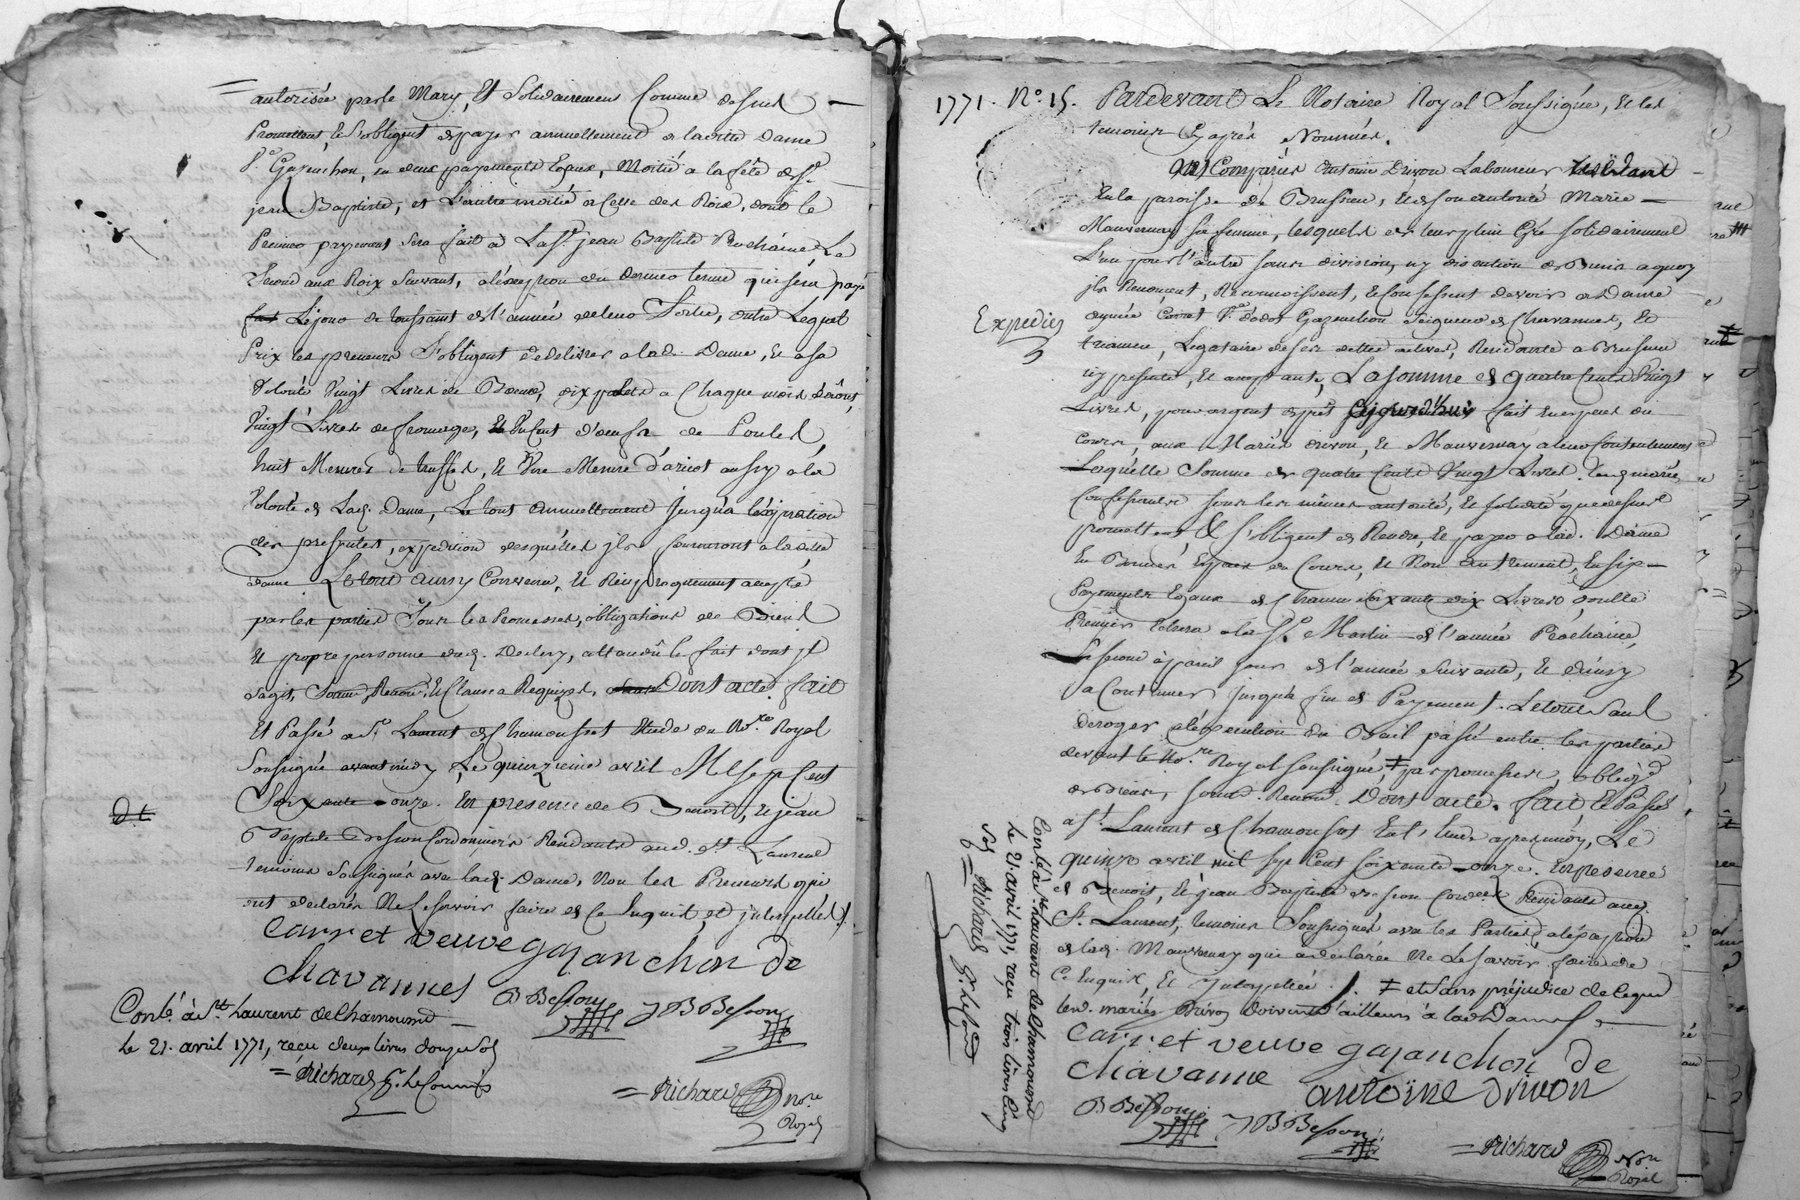 autorisée par le Mary, Et Solidairement Comme dessus
Promettent, et s'obligent de payer annuellement a ladite Dame
Ve. Gazanchon, en deux payements Egaux, Moitié a la fête de St.
jean Baptiste, et L'autre moitié a Celle des Rois, dont le
Premier payement Sera fait a La St. jean Baptiste Prochaine Le
Second aux Roix Suivant, a l'éxception du dernier terme qui séra payé
Le jour de toussaint de l'année de leur Sortie, outre Lequel
Prix les preneurs s'obligent de delivrer a lad. Dame, Et a sa
Volonté Vingt Livres de Beurre, dix a Chaque mois d'aôut,
Vingt Livres de fromage, Un Cent d'oeufs de Poules,
huit Mesures de truffes, Et Une Mesure d'aricot aussy a la
Volonté de Lad. Dame, Le tout Annuellement jusqu'a l'éxpiration
des presentes, expedition desquelles jls fourniront a ladite
dame Le tout Aussy Convenu, Et Reciproquement accepté
par les parties Sous les Promesses, obligations de Biens
Et propre personne dud. attandu le fait dont jl
s'agit, Soum. Renon. Et Clauses Requises. Dont acte. fait
Et Passé a St. Laurent de Chamousset Etude du Nore. Royal
Soussigné avant midy Le quinzieme avril Mil Sept Cent
Soixante-onze. En presence de Benoit, Et jean
Baptiste Besson Cordonniers Residants aud. St Laurent
temoins Soussignés avec lad. Dame, Non les Preneurs qui
ont declarés Ne le Scavoir faire de Ce Enquis, et jnterpellés ./.
Carret veuve gazanchon de
Chavannes
B Besson J B Besson
Conlé. à St. Laurent de Chamousset
Le 21. avril 1771, reçu deux livres douze sols
Richard
Richard Nore
Royal
1771. No. 15. Pardevant Le Notaire Royal Soussigné, Et les
temoins Cy après Nommés.
Antoine Drivon Laboureur Residant
En la paroisse de Brussieu, Et de son autorité Marie
Mauvernay sa femme, lesquels de leur plein Gré solidairement
L'un pour l'autre sans division, ny discution de Biens a quoy
jls Renoncent, Reconnoissent, Et Confessent devoir a Dame
Carret Ve. Gazanchon Seigneur de Chavannes, Et
Expediez
Legataire de ses dettes actives, Residante a Brussieu
cy presente, Et acceptante, La somme de quatre Cents Vingt
Livres, pour argent de prêt cejourd'huy fait En espece du
cours, aux Mariés drivon, Et Mauvernay a leur Contentement
Laquelle Somme de quatre Cents Vingt Livres
sous les mêmes autorité, Et solidité que dessus
promettent Et s'obligent de Rendre, Et payer a lad. Dame
En Bonnes Espèces du Cours, Et Non Autrement, En six
Payements Egaux de Chacun soixante dix Livres,
Premier Echera a la St. Martin de l'année Prochaine,
Le Second à pareil jour de l'année Suivante, Et Ainsy
a Continuer jusqu'à fin de Payement. Le tout sans
deroger a l'éxécution du Bail passé entre les parties
devant le Nore. Royal soussigné, ‡ par promesses, oblig.
de biens, Soum. Renon. Dont acte. fait, Et Passé
a St. Laurent de Chamousset En l'Etude apres midy, Le
quinze avril mil Sept Cent Soixante-onze. En presence
de Benoit, Et jean Baptiste Besson Residants aud.
St. Laurent, temoins Soussignés avec les Parties, a l'éxception
de lad. Mauvernay qui a declarée Ne Le Scavoir faire de
Ce Enquise, Et Jnterpellée ./. ‡ et Sans préjudice de ce que
lesd. mariés Drivon doivent d'ailleurs à lad. Dame
Carret veuve gazanchon de
Chavanne antoine drivon
B Besson J B Besson
Richard Nore
Royal
Conlé. à St. Laurent de Chamousset
Le 21. avril 1771, reçu trois livres cinq
Sols Richard